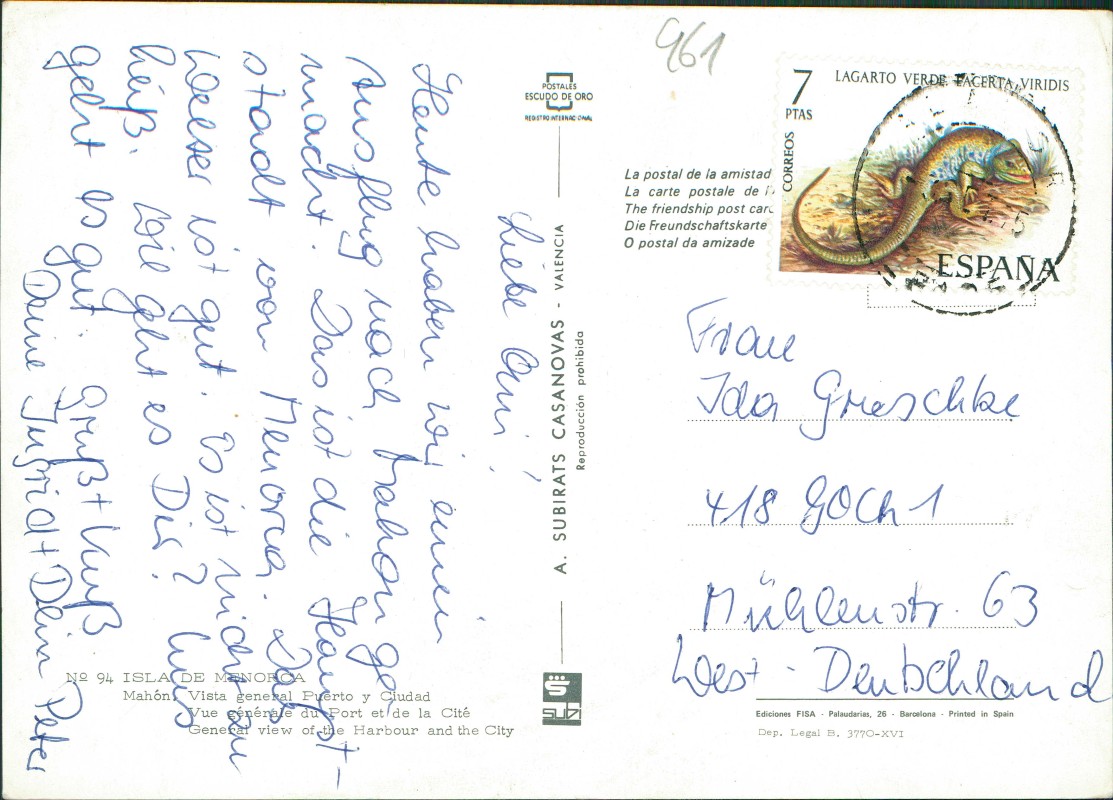 Liebe Omi,
Heute haben wir einen
Ausflug nach Mahon ge-
macht. Das ist die Haupt-
stadt von Menorca. Das
Wetter ist gut. Es ist nicht zu
heiß. Wie geht es Dir? Uns
geht es gut. Gruß + Kuß
Deine Ingrid + Dein Peter
Nº 94 ISLA DE MENORCA
Mahón, Vista general Puerto y Ciudad
Vue générale du Port et de la Cité
General view of the Harbour and the City
POSTALES
ESCUDO DE ORO
REGISTRO INTERNACIONAL
A. SUBIRATS CASANOVAS - VALENCIA
Reproducción prohibida
SUBI
961
La postal de la amistad
La carte postale de l'
The friendship post card
Die Freundschaftskarte
O postal da amizade
7
PTAS
LAGARTO VERDE LACERTA VIRIDIS
CORREOS
ESPAÑA
Frau
Ida Graschke
418 GOCH 1
Mühlenstr. 63
West - Deutschland
Ediciones FISA - Palaudarias, 26 - Barcelona - Printed in Spain
Dep. Legal B. 3770-XVI